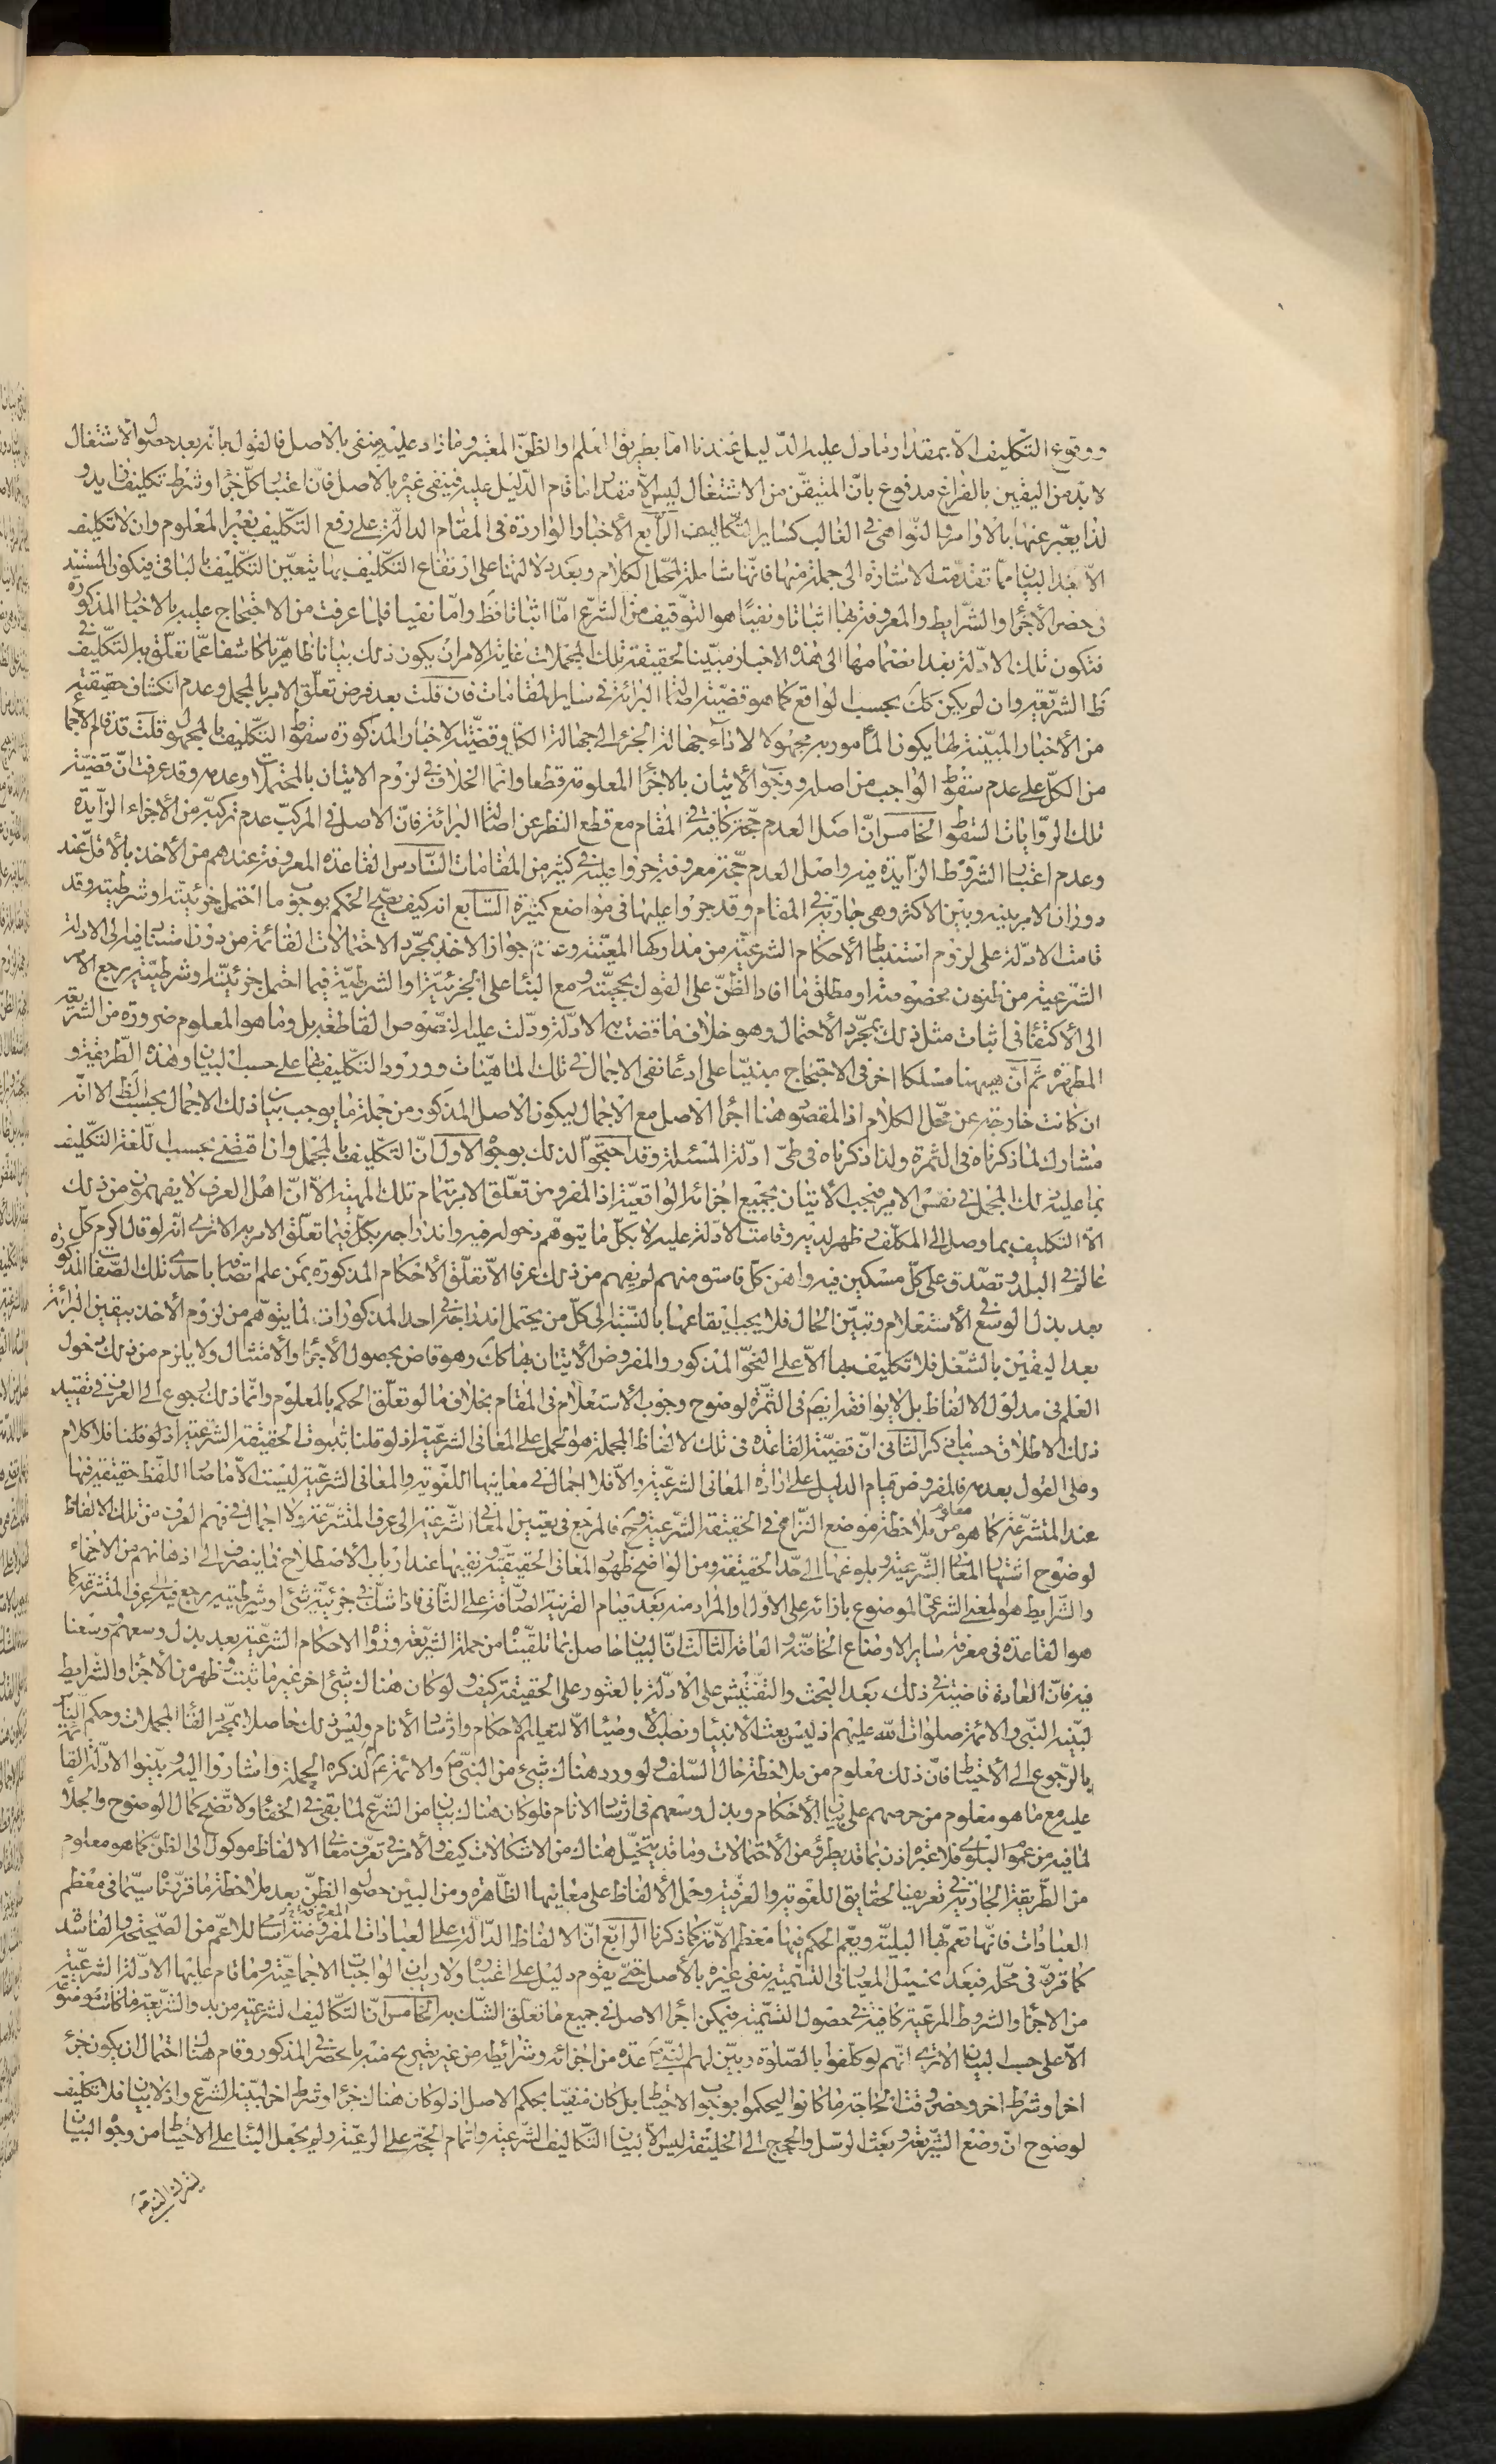 ووقوع التكليف الا بمقدار ما دل عليه الدليل عندنا اما بطريق العلم او الظن المعتبر وما زاد عليه منفى بالاصل فالقول بانه بعد حصول الاشتغال
لا بد من اليقين بالفراغ مدفوع بان المتيقن من الاشتغال ليس الا مقدار ما قام الدليل عليه فينفى غيره بالاصل فان اعتبار كل جزء او شرط تكليف زايد و
لذا يعبر عنها بالاوامر والنواهى في الغالب كساير التكاليف الرابع الأخبار الواردة فى المقام الدالة على رفع التكليف بغير المعلوم وان لا تكليف
الا بعد البيان مما تقدمت الاشارة الى جملة منها فانها شاملة لمحل الكلام وبعد دلالتها على ارتفاع التكليف بها يتعين التكليف بالباقى فيكون المستند
فى حصر الأجزاء والشرايط والمعرفة بها اثباتا ونفيا هو التوقيف من الشرع اما اثباتا فظ واما نفيا فلما عرفت من الاحتجاج عليه بالاخبار المذكورة
فتكون تلك الادلة بعد انضمامها الى هذه الاخبار مبينا لحقيقة تلك المجملات غاية الامر ان يكون ذلك بيانا ظاهريا كاشفا عما تعلق به التكليف فى
ظ الشريعة وان لم يكن كك بحسب الواقع كما هو قضية اصالة البرائة في ساير المقامات فان قلت بعد فرض تعلق الامر بالمجمل وعدم انكشاف حقيقته
من الأخبار المبينة لها يكون المأمور به مجهولا لاداء جهالة الجزء الى جهالة الكل وقضية الاخبار المذكورة سقوط التكليف بالمجهول قلت قد قام الاجماع
من الكل على عدم سقوط الواجب من اصله ووجوب الأتيان بالاجزاء المعلومة قطعا وانما الخلاف في لزوم الاتيان بالمحتملات وعدمه وقد عرفت ان قضية
تلك الروايات السقوط الخامس ان اصل العدم حجة كافية في المقام مع قطع النظر عن اصالة البرائة فان الاصل فى المركب عدم تركبه من الأجزاء الزايدة
وعدم اعتبار الشروط الزايدة فيه واصل العدم حجة معروفة جروا عليه في كثير من المقامات السادس القاعدة المعروفة عندهم من الأخذ بالأقل عند
دوران الامر بينه وبين الاكثر وهى جارية في المقام وقد جروا عليها فى مواضع كثيرة السابع انه كيف يصح الحكم بوجوب ما احتمل جزئيته او شرطيته وقد
قامت الادلة على لزوم استنباط الأحكام الشرعية من مداركها المعينة وعدم جواز الاخذ بمجرد الاحتمالات القائمة من دون استنادها الى الادلة
الشرعية من ظنون مخصوصة او مطلق ما افاد الظن على القول بحجيته ومع البناء على الجزئية او الشرطية فيما احتمل جزئيته او شرطيته يرجع الأمر
الى الأكتفاء فى اثبات مثل ذلك بمجرد الأحتمال وهو خلاف ما قضت به الادلة ودلت عليه النصوص القاطعة بل وما هو المعلوم ضرورة من الشريعة
المطهرة ثم ان هيهنا مسلكا اخر فى الاحتجاج مبنيا على ادعاء نفى الاجمال في تلك الماهيات وورود التكليف بها على حسب البيان وهذه الطريقة و
ان كانت خارجة عن محل الكلام اذ المقصود هنا اجراء الاصل مع الاجمال ليكون الاصل المذكور من جملة ما يوجب بيان ذلك الاجمال بحسب الظ الا انه
مشارك لما ذكرناه فى الثمرة ولذا ذكرناه فى طى ادلة المسئلة وقد احتجوا لذلك بوجوه الاول ان التكليف بالمجمل وان اقتضى بحسب اللغة التكليف
بما عليه ذلك المجمل في نفس الامر فيجب الأتيان بجميع اجزائه الواقعية اذ المفروض تعلق الامر بتمام تلك المهية الا ان اهل العرف لا يفهمون من ذلك
الا التكليف بما وصل الى المكلف وظهر لديه وقامت الادلة عليه لا بكل ما يتوهم دخوله فيه واندراجه بكل فيما تعلق الامر به الا ترى انه لو قال اكرم كل
عالم في البلد وتصدق على كل مسكين فيه واهن كل فاسق منهم لم يفهم من ذلك عرفا الا تعلق الأحكام المذكورة بمن علم اتصافه باحدى تلك الصفات المذكورة
بعد بذل الوسع في الأستعلام وتبين الحال فلا يجب ايقاعها بالنسبة الى كل من يحتمل اندراجه في احد المذكورات لما يتوهم من لزوم الأخذ بيقين البرائة
بعد اليقين بالشغل فلا تكليف بها الا على النحو المذكور والمفروض الأتيان بها كك وهو قاض بحصول الأجزاء والأمتثال ولا يلزم من ذلك دخول
العلم فى مدلول الالفاظ بل لا يوافقه ايضا فى الثمرة لوضوح وجوب الأستعلام فى المقام بخلاف ما لو تعلق الحكم بالمعلوم وانما ذلك رجوع الى العرف في تقييد
ذلك الاطلاق حسبما ذكر الثانى ان قضية القاعدة فى تلك الالفاظ المجملة هو الحمل على المعانى الشرعية اذ لو قلنا بثبوت الحقيقة الشرعية اذ لو قلنا فلا كلام
وعلى القول بعدمه فالمفروض قيام الدليل على ارادة المعانى الشرعية والا فلا اجمال في معانيها اللغوية والمعانى الشرعية ليست الا ما صار اللفظ حقيقة فيها
عند المتشرعة كما هو معلوم من ملاحظة موضع النزاع في الحقيقة الشرعية وح فالمرجع فى تعيين المعانى الشرعية الى عرف المتشرعة ولا اجمال في فهم العرف من تلك الالفاظ
لوضوح اشتهار المعانى الشرعية وبلوغها الى حد الحقيقة ومن الواضح ظهور المعانى الحقيقية وتعينها عند ارباب الاصطلاح فما ينصرف الى اذهانهم من الاجزاء
والشرايط هو المعنى الشرعى الموضوع بازائه على الاول او المراد منه بعد قيام القرينة الصارفة على الثانى فاذا شك في جزئية شئ او شرطيته يرجع فيه الى عرف المتشرعة كما
هو القاعدة فى معرفة ساير الاوضاع الخاصة والعامة الثالث ان البيان حاصل بما تلقيناه من حملة الشريعة ورووا الاحكام الشرعية بعد بذل وسعهم وسعنا
فيه فان العادة قاضية في ذلك بعد البحث والتفتيش على الادلة بالعثور على الحقيقة كيف ولو كان هناك شئ اخر غير ما ثبت وظهر من الأجزاء والشرايط
لبينه النبى والائمة صلوات الله عليهم اذ ليس بعث الانبياء ونصب الأوصياء الا لتعليم الاحكام وارشاد الأنام وليس ذلك حاصلا بمجرد القاء المجملات وحكم الناس
بالرجوع الى الأحتياط فان ذلك معلوم من ملاحظة حال السلف ولو ورد هناك شئ من النبى ص والائمة ع لذكره الجملة واشاروا اليه وبينوا الادلة القائمة
عليه مع ما هو معلوم من حرصهم على بيان الأحكام وبذل وسعهم فى ارشاد الانام فلو كان هناك بيان من الشرع لما بقى في الخفاء ولا تضح كمال الوضوح والجلاء
لما فيه من عموم البلوى فلا عبرة اذن بما قد يطرق من الأحتمالات وما قد يتخيل هناك من الاشكالات كيف والأمر في تعرف معانى الالفاظ موكول الى الظن كما هو معلوم
من الطريقة الجارية في تعريف الحقايق اللغوية والعرفية وحمل الألفاظ على معانيها الظاهرة ومن البين حصول الظن بعد ملاحظة ما قررنا سيما فى معظم
العبادات فانها تعم بها البلية ويعم الحكم فيها معظم الامة كما ذكرنا الرابع ان الالفاظ الدالة على العبادات المفروضة اسام للاعم من الصحيحة والفاسدة
كما قرر فى محله فبعد تحصيل المعيار فى التسمية ينفى غيره بالأصل حتى يقوم دليل على اعتباره ولا ريب ان الواجبات الاجماعية وما قام عليها الادلة الشرعية
من الاجزاء والشروط المرعية كافية في حصول التسمية فيمكن اجراء الاصل في جميع ما تعلق الشك به الخامس ان التكاليف الشرعية من بدو الشريعة ما كانت موضوعة
الا على حسب البيان الا ترى انهم لو كلفوا بالصلوة وبين لهم النبى ص عدة من اجزائه وشرائطه من غير تصريح منه بالحصر في المذكور وقام هناك احتمال ان يكون جزء
اخر او شرط اخر وحضر وقت الحاجة ما كانوا ليحكموا بوجوب الاحتياط بل كان منفيا بحكم الاصل اذ لو كان هناك جزء او شرط اخر لبينه الشرع واذ لا بيان فلا تكليف
لوضوح ان وضع الشريعة وبعث الرسل والحجج الى الخليقة ليس الا لبيان التكاليف الشرعية واتمام الحجة على الرعية ولم يجعل البناء على الاحتياط من وجوه البيان